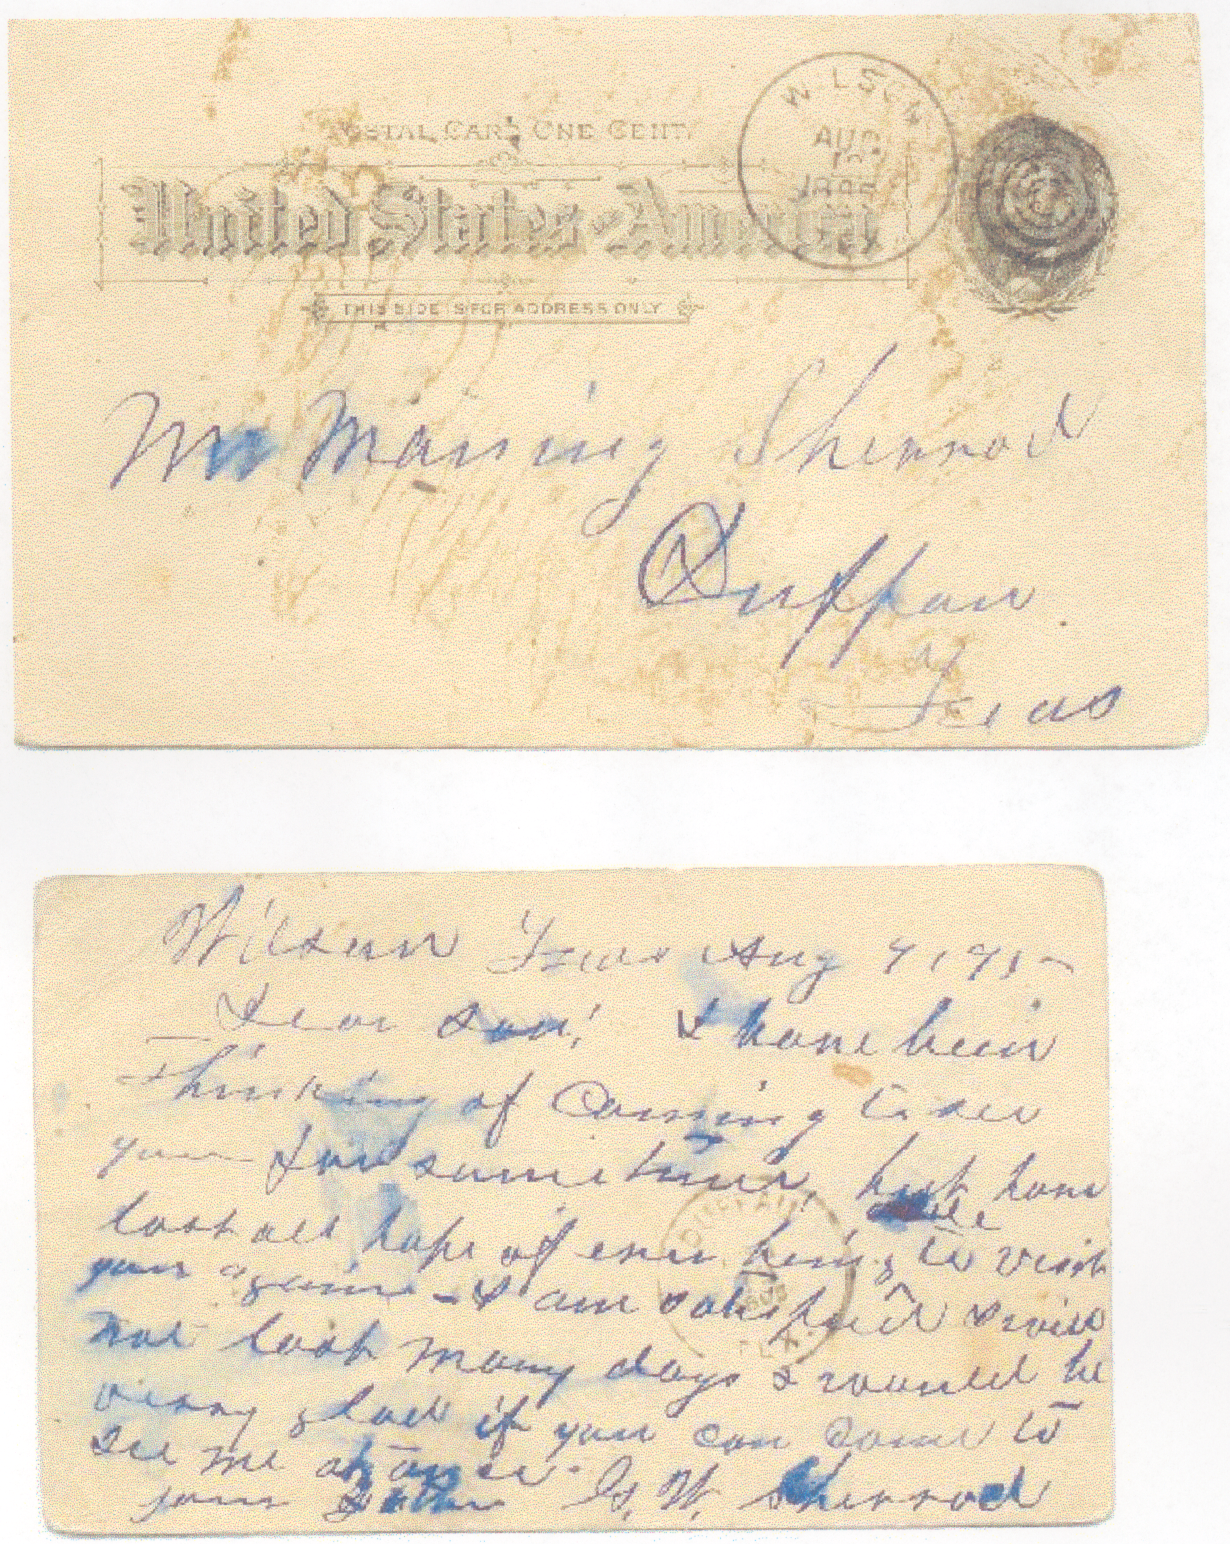 POSTAL CARD ONE CENT.
WILSON
AUG
United States of America
THIS SIDE IS FOR ADDRESS ONLY
Mr Maning Sherrod
Duffau
Texas
Wilson Texas Aug 9, 95
Dear Son! I have been
Thinking of Coming to see
you for sometime, but have
lost all hope of ever being able to visit
you again - I am satisfied I will
not last many days I would be
verry glad if you can come to
see me at once.
your Father G. W. Sherrod
DUFFAU
TEX.